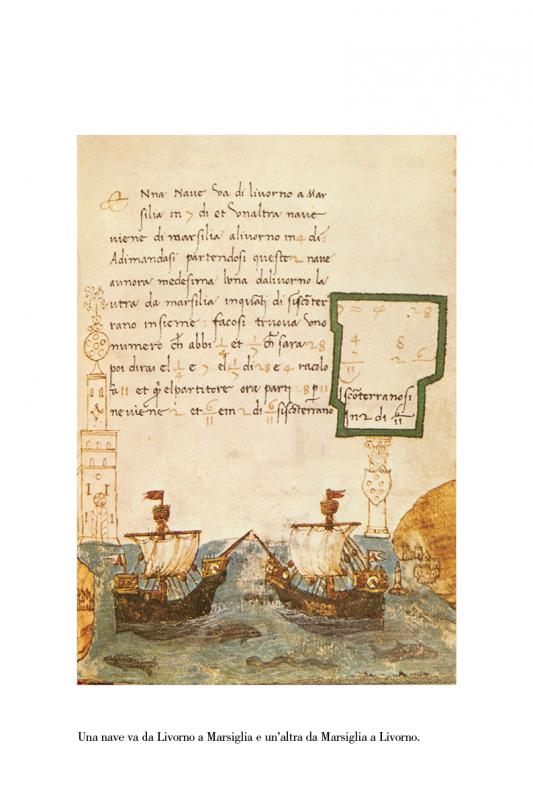 Nna Nave va di livorno a Mar
silia in 7 di et vnaltra naue
viene di marsilia alivorno in 4 di:
Adimandasi partendosi queste 2 naue
aunora medesima luna dalivorno la
vtra da marsilia inquãti di siscoter
rano insieme: facosi truova vno
numero ch abbi 1/4 et 1/7 ch sara 28
poi dirai el 1/4 e 7 el 1/7 di 28 e 4 racolo
fa 11 et elpartitore ora parti 28 p 11
neviene 2 et 6/11 e in 2 di 6/11 siscoterrano
7 = 4 28
4 8
7 2 6
11
Iscoterranosi
In 2 di 6/11
Una nave va da Livorno a Marsiglia e un'altra da Marsiglia a Livorno.